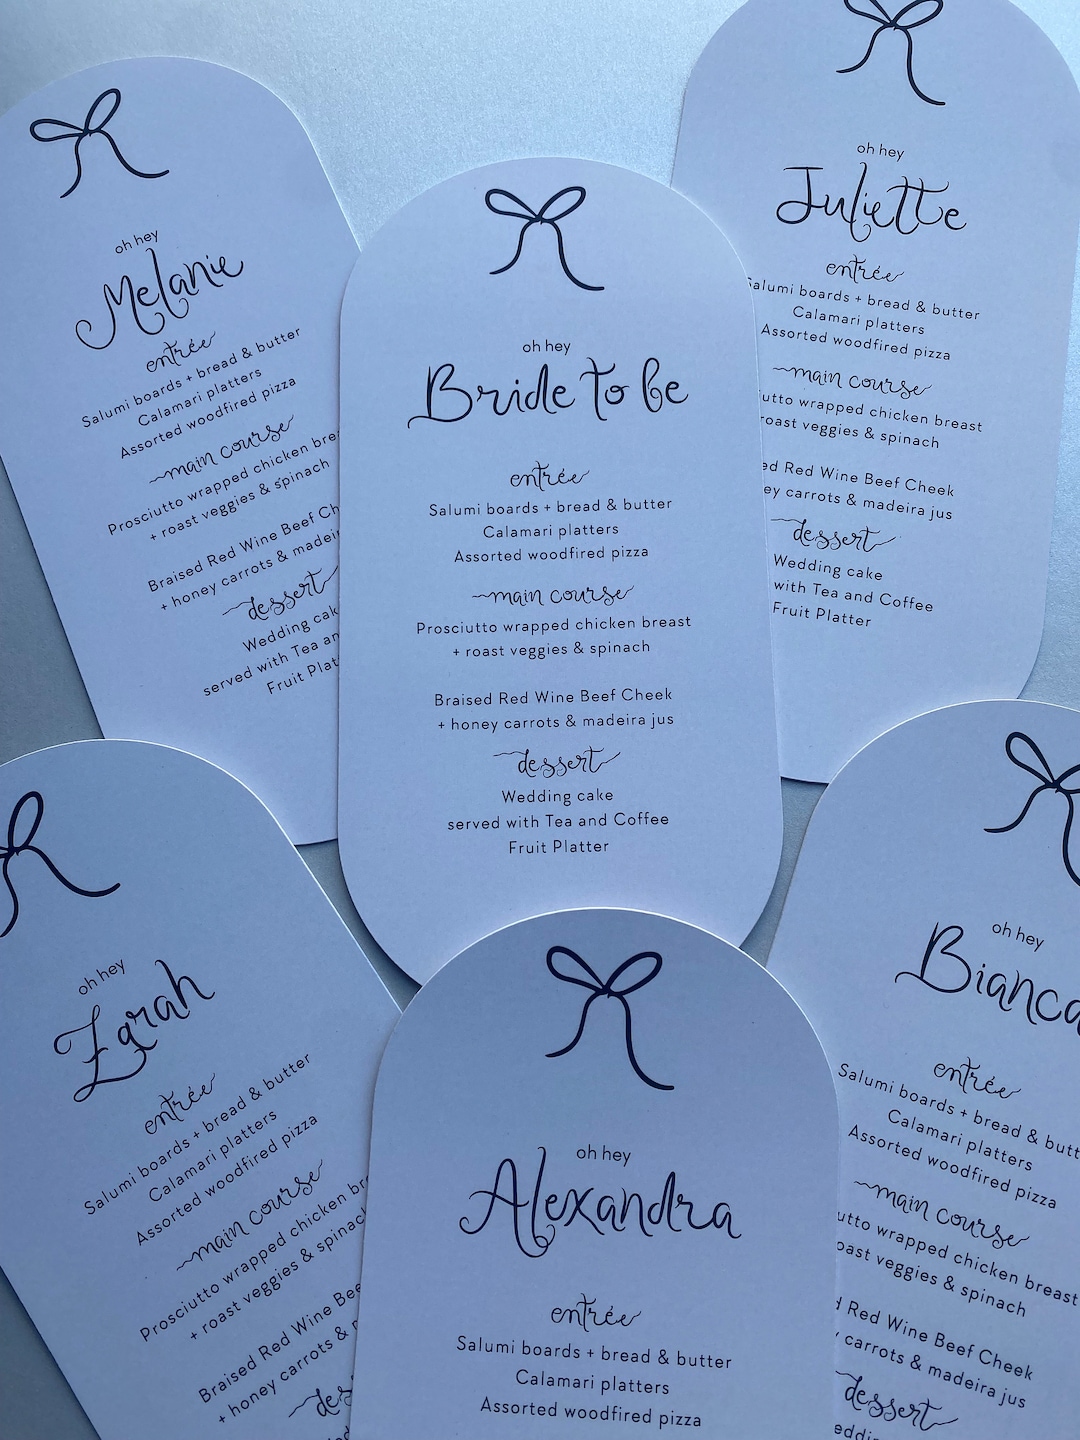 oh hey
Melanie
entrée
Salumi boards + bread & butter
Calamari platters
Assorted woodfired pizza
main course
Prosciutto wrapped chicken
+ roast veggies & spinach
Braised Red Wine Beef
+ honey carrots &
dessert
Wedding
served with Tea
Fruit
oh hey
Bride to be
entrée
Salumi boards + bread & butter
Calamari platters
Assorted woodfired pizza
main course
Prosciutto wrapped chicken breast
+ roast veggies & spinach
Braised Red Wine Beef Cheek
+ honey carrots & madeira jus
dessert
Wedding cake
served with Tea and Coffee
Fruit Platter
oh hey
Juliette
entrée
Salumi boards + bread & butter
Calamari platters
Assorted woodfired pizza
main course
wrapped chicken breast
roast veggies & spinach
Red Wine Beef Cheek
carrots & madeira jus
dessert
Wedding cake
with Tea and Coffee
Fruit Platter
oh hey
Zarah
entrée
Salumi boards + bread & butter
Calamari platters
Assorted woodfired pizza
main course
Prosciutto wrapped chicken
+ roast veggies &
Braised Red Wine
+ honey carrots &
oh hey
Alexandra
entrée
Salumi boards + bread & butter
Calamari platters
Assorted woodfired pizza
oh hey
Bianca
entrée
Salumi boards + bread &
Calamari platters
Assorted woodfired pizza
main course
wrapped chicken breast
roast veggies & spinach
Red Wine Beef Cheek
carrots & madeira jus
dessert